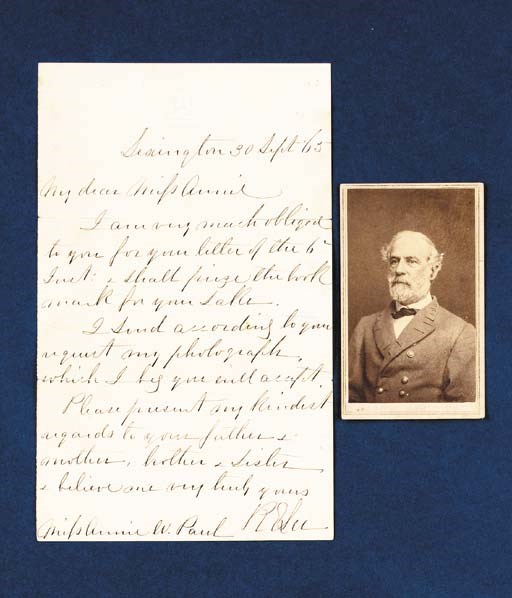 Lexington 30 Sept '65
My dear Miss Annie
I am very much obliged
to you for your letter of the 6th
Inst: & shall prize the book
mark for your sake.
I send according to your
request my photograph,
which I beg you will accept.
Please present my kindest
regards to your father &
mother, brother & sister,
& believe me very truly yours
R E Lee
Miss Annie W. Paul